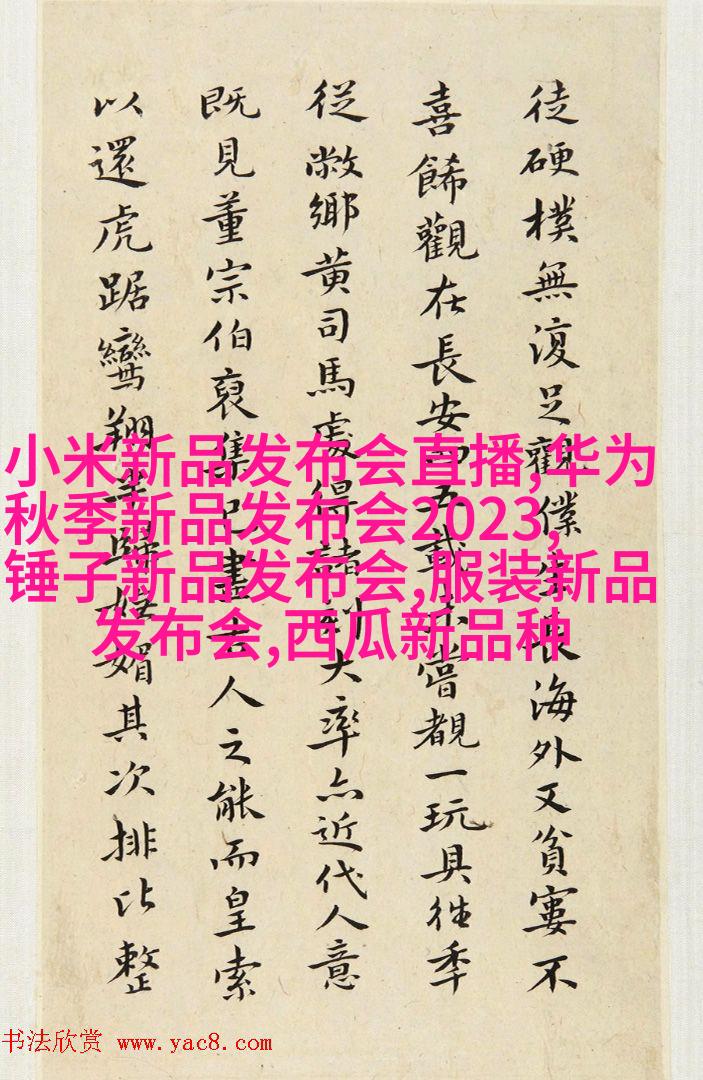 徒硬樸無復足觀僕生長海外又貧窶不
喜餙觀在長安四五載未嘗覩一玩具往季
從敝鄉黄司馬處得諸刻大率亦近代人意
既見董宗伯裒集已盡古人之能而皇索
以還虎踞鸞翔媚其次排比整
小米新品发布会直播,华为
秋季新品发布会2023,
锤子新品发布会,服装新品
发布会,西瓜新品种
书法欣赏 www.yac8.com